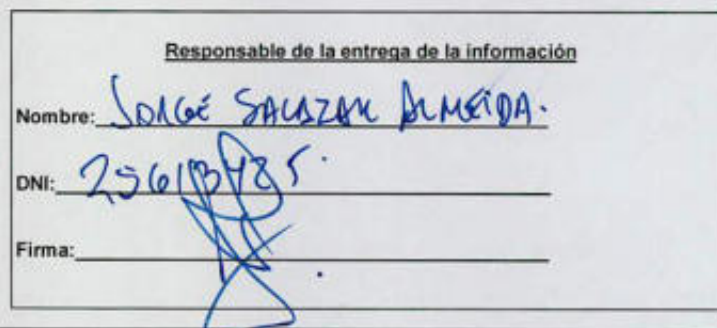 Responsable de la entrega de la información
Nombre: JORGE SALAZAR ALMEIDA.
DNI:
Firma: